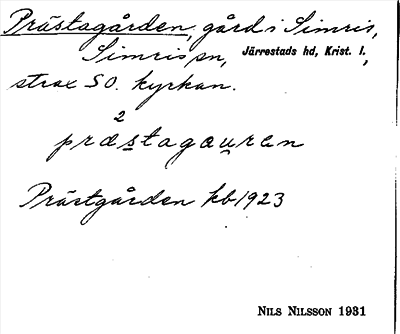 Prästagården, gård i Simris,
Simris sn, Järrestads hd, Krist. l.,
strax SO. kyrkan.
2
præstagæuræn
Prästgården kb 1923
NILS NILSSON 1931